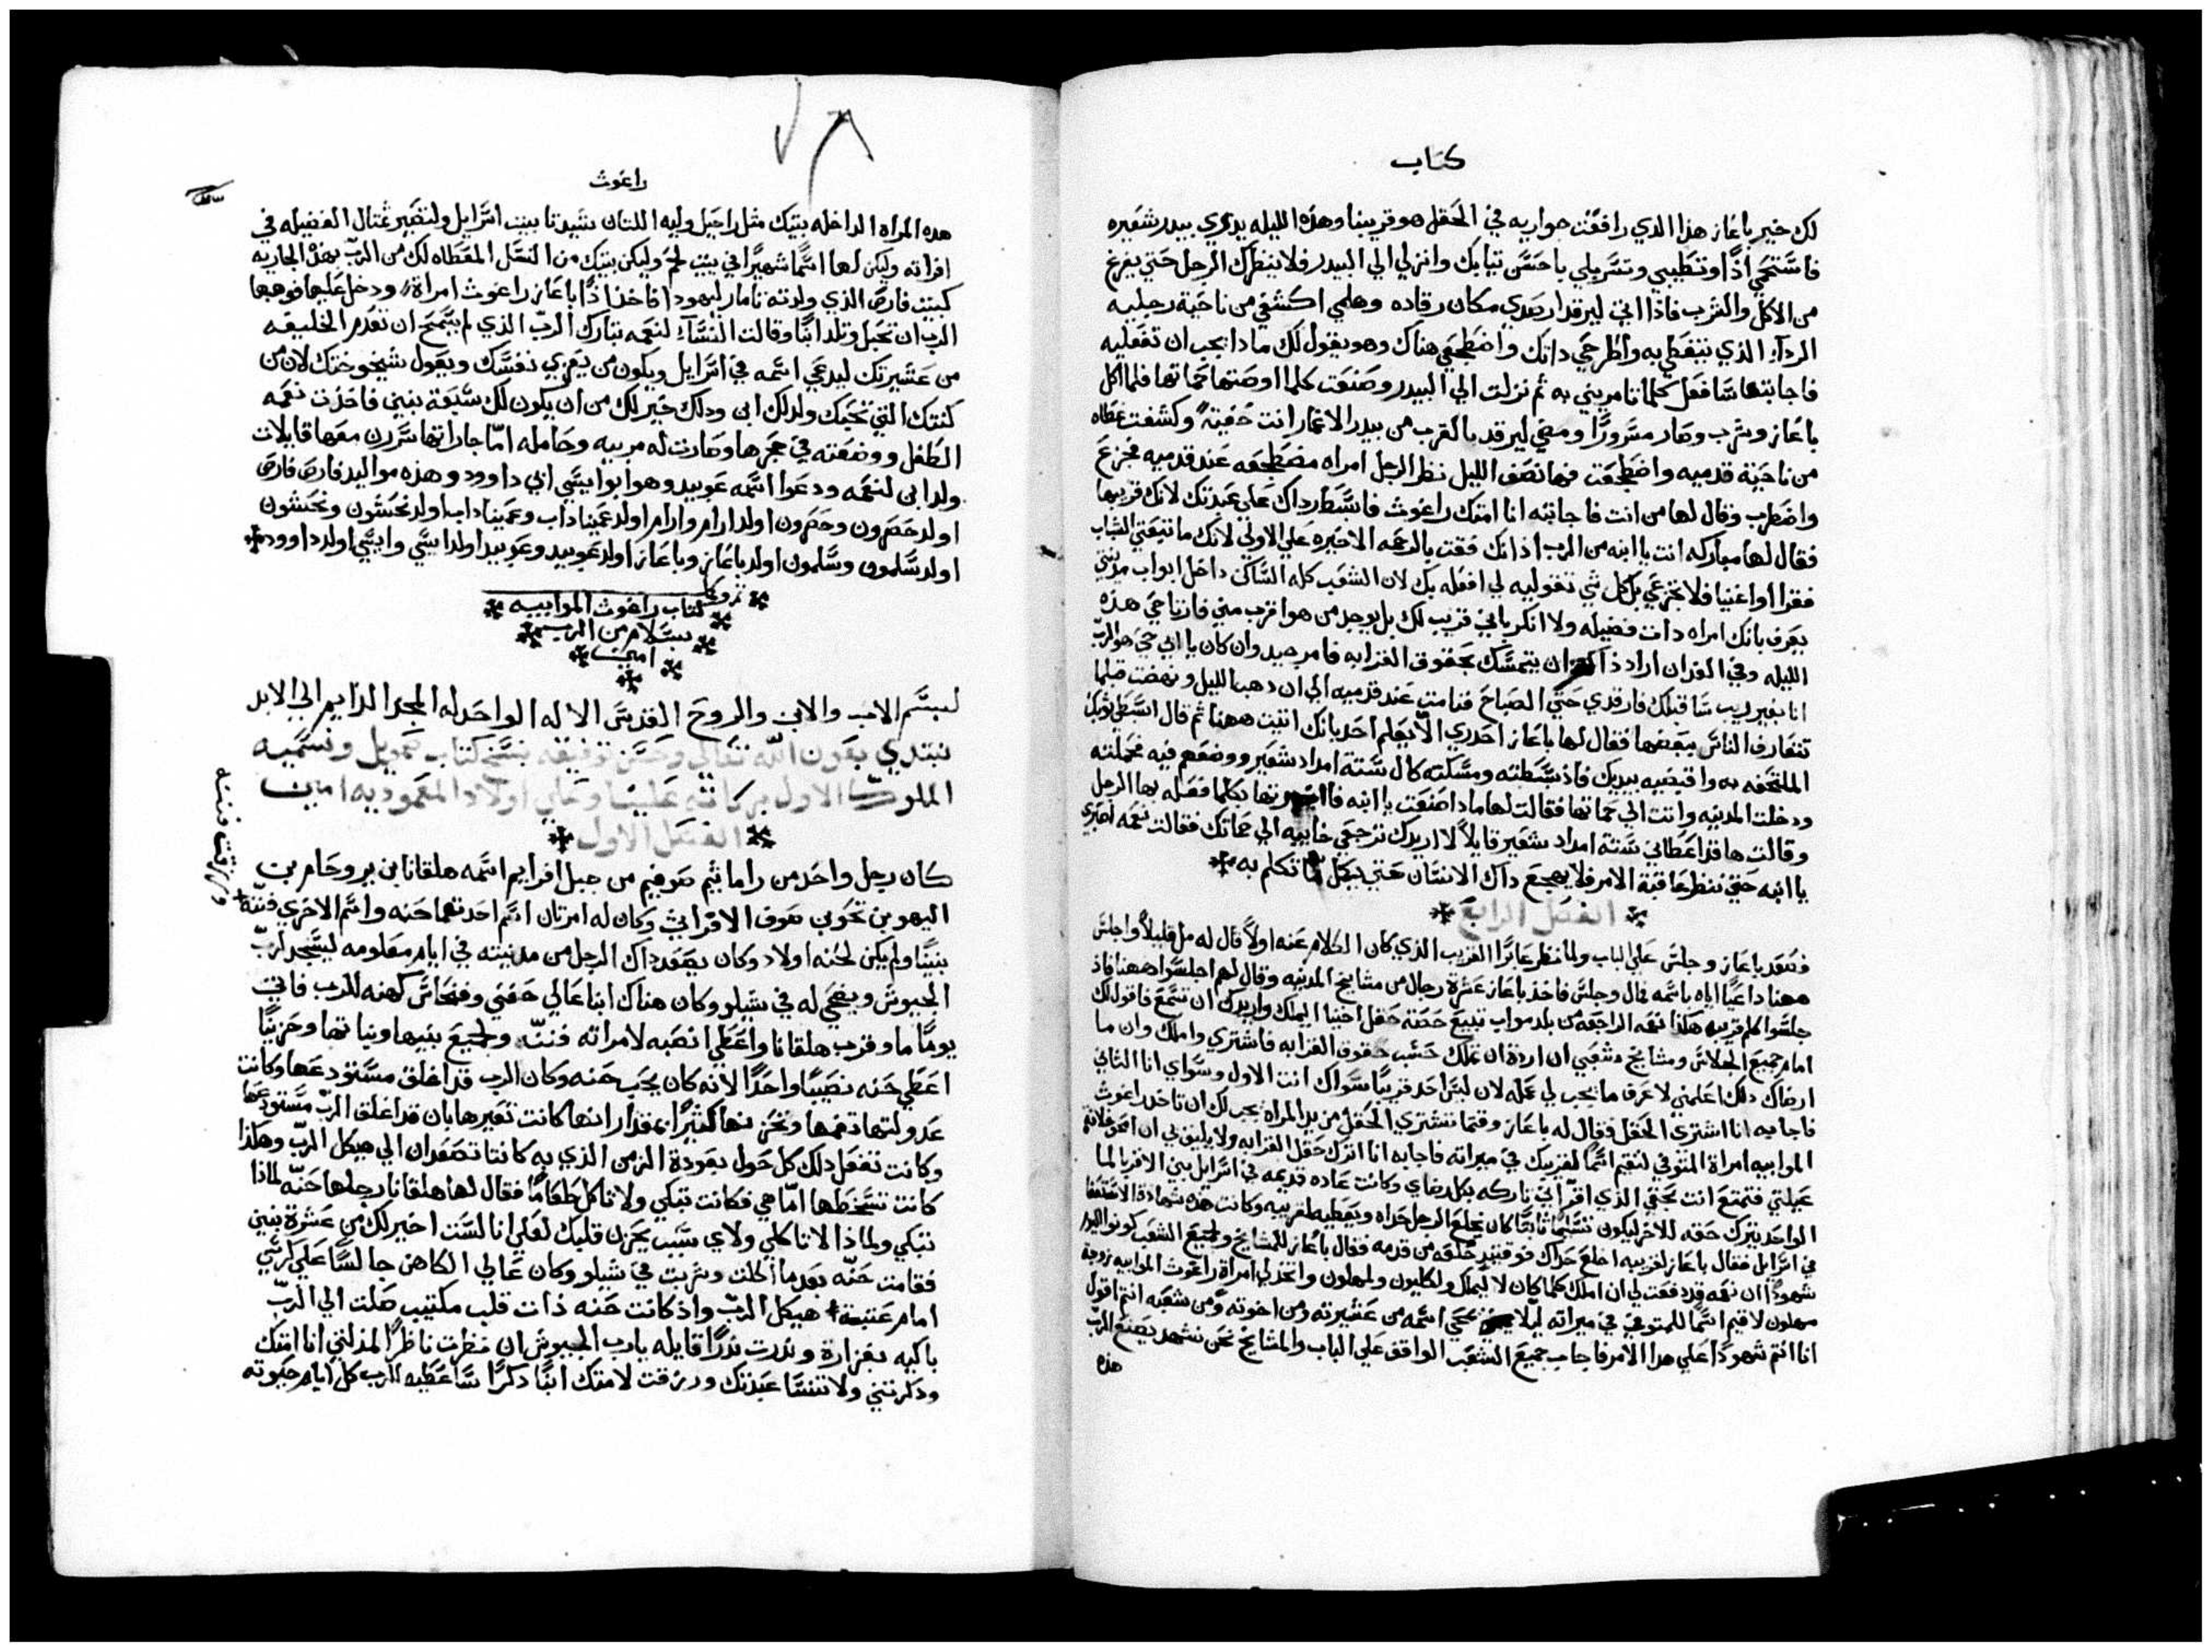 كتاب
لك خير باعاز هذا الدي رافقت جواريه في الحقل هو قريبنا وهذه الليله يدري بيدر شعيره
فاستحمي اذًا وتطيبي وتسربلي باحسن تيابك وانزلي الي البيدر فلا ينظرك الرجل حتي يفرغ
من الاكل والشرب فاذا اتي ليرقد ارصدي مكان رقاده وهلمي اكشفي من ناحية رجليه
الردآء الذي يتغطي به واطرحي داتك واضطجعي هناك وهو يقول لك مادا يجب ان تفعليه
فاجابتها سافعل كلما تامريني به ثم نزلت الي البيدر وصنعت كلما اوصتها حماتها فلما اكل
باعاز وشرب وصار مسرورًا ومضي ليرقد بالقرب من بيدر الاغمار اتت خفيةً وكشفت غطاه
من ناحية قدميه واضطجعت فها نصف الليل نظر الرجل امراه مضطجعه عند قدميه فجزع
واضطرب وقال لها من انت فاجابته انا امتك راعوث فابسط رداك علي عبدتك لانك قريبها
فقال لها مباركه انت يا ابنه من الرب اذ انك فقت بالرحمه الاخيره علي الاولي لانك ما تبعتي الشباب
فقرا او اغنيا فلا تجزعي بل كل شي تقوليه لي افعله بك لان الشعب كله الساكن داخل ابواب مدينتي
يعرف بانك امراه دات فضيله ولا انكر باني قريب لك بل يوجد من هو اقرب مني فارتاحي هذه
الليله وفي الغد ان اراد ذاك ان يتمسك بحقوق القرابه فامر جيد وان كان يا ابي حي هو الرب
انا بغير ريب ساقبلك فارقدي حتي الصباح فنامت عند قدميه الي ان دهب الليل ونهضت قبلما
تتعارف الناس ببعضها فقال لها باعاز احدري الا يعلم احد بانك اتيت ههنا ثم قال ابسطي توبك
الملتحفه به واقبضيه بيديك فاذ بسطته ومسكته كال ستة امداد شعير ووضعهم فيه فحملته
ودخلت المدينه واتت الي حماتها فقالت لها مادا صنعت يا ابنه فاخبرتها بكلما فعله بها الرجل
وقالت ها قد اعطاني ستة امداد شعير قايلاً لا اريدك ترجعي خايبه الي حماتك فقالت نعمه اصبري
يا ابنه حتي ننظر عاقبة الامر فلا يهجع داك الانسان حتي يكمل ما تكلم به
الفصل الرابع
فصعد باعاز وجلس علي الباب ولما نظر عابرًا القريب الذي كان الكلام عنه اولاً قال له مل قليلاً واجلس
ههنا داعيًا اياه باسمه فمال وجلس فاخذ باعاز عشرة رجال من مشايخ المدينه وقال لهم اجلسوا ههنا فاذ
جلسوا كلم قريبه هكذا نعمه الراجعه من بلد مواب تبيع حصة حقل اخينا اليملك واريدك ان تسمع فاقول لك
امام جميع الجلاس ومشايخ شعبي ان اردة ان تملك حسب حقوق القرابه فاشتري واملك وان ما
ارضاك دلك اعلمني لاعرف ما يجب لي عمله لان ليس احد قريبًا سواك انت الاول وسواي انا الثاني
فاجابه انا اشتري الحقل فقال له باعاز وقتما تشتري الحقل من يد المراه يجب لك ان تاخد راعوث
الموابيه امراة المتوفي لتقيم اسمًا لقريبك في ميراته فاجابه انا اترك حقل القرابه ولا يليق بي ان امحو خلافة
عيلتي فتمتع انت بحقي الذي اقر اني تاركه بكل رضاي وكانت عاده قديمه في اسرايل بين الاقربا لما
الواحد يترك حقه للاخر ليكون تسليمًا تابتًا كان يخلع الرجل حداه ويعطيه لقريبه وكانت هذه شهادة الاستعفا
في اسرايل فقال باعاز لقريبه اخلع حداك فوقتيدٍ خلعه من قدمه فقال باعاز للمشايخ ولجميع الشعب كونوا اليوم
شهودًا ان نعمه قد دفعت لي ان املك كلما كان لاليملك ولكليون ولمهلون واتخذ لي امراة راعوث الموابيه زوجة
مهلون لاقيم اسمًا للمتوفي في ميراته ليلا يمحي اسمه من عشيرته ومن اخوته ومن شعبه انتم اقول
انا انتم شهودًا علي هدا الامر فاجاب جميع الشعب الواقف علي الباب والمشايخ نحن نشهد يصنع الرب
هذه
راعوث
هده المراه الداخله بيتك مثل راحيل وليه اللتان شيدتا بيت اسرايل ولتصير تمتال الفضيله في
افراته وليكن لها اسمًا شهيرًا في بيت لحم وليكن بيتك من النسل المعطاه لك من الرب بهذه الجاريه
كبيت فارص الذي ولدته تامار ليهودا فاخذ اذًا باعاز راعوث امراة ودخل عليها فوهبها
الرب ان تحبل وتلد ابنًا وقالت النسآء لنعمه تبارك الرب الذي لم يسمح ان تعدم الخليفه
من عشيرتك ليدعي اسمه في اسرايل ويكون من يعزي نفسك ويعول شيخوختك لان من
كنتك التي تحبك ولد لك ابن ودلك خير لك من ان يكون لك سبعة بنين فاخذت نعمه
الطفل ووضعته في حجرها وصارت له مربيه وحامله امّا جاراتها سررن معها قايلات
ولد ابن لنعمه ودعوا اسمه عوبيد وهو ابو ايسي ابي داوود وهذه مواليد فارص فارص
اولد حصرون وحصرون اولد ارام وارام اولد عميناداب وعميناداب اولد نحشون ونحشون
اولد سلمون وسلمون اولد باعاز وباعاز اولد عوبيد وعوبيد اولد ايسي وايسي اولد داوود
كتاب راعوث الموابيه
بسلام من الرب
امين
بسم الاب والابن والروح القدس الاله الواحد له المجد الدايم الي الابد
نبتدي بعون الله تعالي وحسن توفيقه بنسخ كتاب صمويل ونسميه
الملوك الاول بركاته علينا وعلي اولاد المعموديه امين
الفصل الاول
كان رجل واحد من راماتيم صوفيم من جبل افرايم اسمه هلقانا بن يروحام بن
اليهو بن تحو بن صوف الافراتي وكان له امرتان اسم احدتهما حنه واسم الاخري فننّة
بنينًا ولم يكن لحنه اولاد وكان يصعد داك الرجل من مدينته في ايام معلومه ليسجد لرب
الجيوش ويضحي له في شيلو وكان هناك ابنا عالي حفني وفنحاس كهنه للرب فاتي
يومًا ما وقرب هلقانا واعطي انصبه لامراته فننّه ولجميع بنيها وبناتها وحزينًا
اعطي حنه نصيبًا واحدًا لانه كان يحب حنه وكان الرب قد اغلق مستودعها وكانت
عدولتها تغمها وتحزنها كثيرًا بمقدار انها كانت تعيرها بان قد اغلق الرب مستودعها
وكانت تفعل دلك كل حول بعودة الزمن الذي به كانتا تصعدان الي هيكل الرب وهكذا
كانت تسخطها امّا هي فكانت تبكي ولا تاكل طعامًا فقال لها هلقانا رجلها حنّه لماذا
تبكي ولماذا لا تاكلي ولاي سبب يحزن قلبك لعلي انا لست اخير لك من عشرة بنين
فقامت حنّه بعد ما اكلت وشربت في شيلو وكان عالي الكاهن جالسًا علي كرسي
امام عتبة هيكل الرب واذ كانت حنه ذات قلب مكتيب صلت الي الرب
باكيه بغزارة وندرت ندرًا قايله يارب الجيوش ان نظرت ناظرًا لمذلتي انا امتك
ودكرتني ولا تنسا عبدتك ورزقت لامتك ابنًا دكرًا ساعطيه للرب كل ايام حيوته
ورزقت فننه